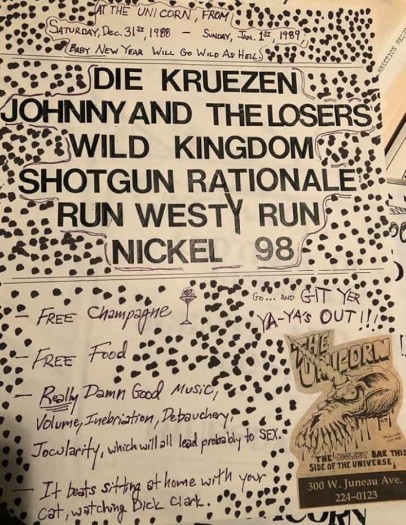 AT THE UNICORN, FROM
SATURDAY, DEC. 31ST, 1988 — SUNDAY, JAN. 1ST, 1989,
(BABY NEW YEAR WILL GO WILD AS HELL.)
DIE KRUEZEN
JOHNNY AND THE LOSERS
WILD KINGDOM
SHOTGUN RATIONALE
RUN WESTY RUN
NICKEL 98
— FREE Champagne
GO... AND GIT YER
YA-YA'S OUT!!!
— FREE Food
— Really Damn Good Music,
Volume, Inebriation, Debauchery,
Jocularity, which will all lead probably to SEX.
— It beats sitting at home with your
cat, watching Dick Clark.
THE
UNICORN
THE COOLEST BAR THIS
SIDE OF THE UNIVERSE!
300 W. Juneau Ave.
224-0123